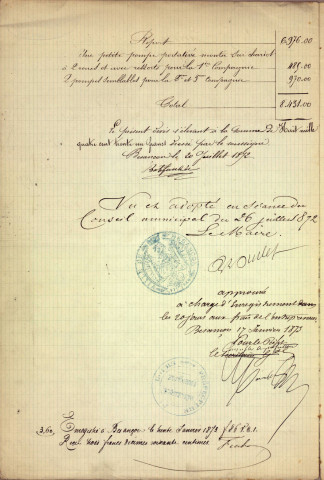 Report 6,976.00
Une petite pompe portative montée sur chariot
à 2 roues et avec ressorts pour la 1re Compagnie 485.00
2 pompes semblables pour la 2e et 3e Compagnie 970.00
Total 8.431.00
Le présent devis s'élevant à la somme de Huit mille
quatre cent trente un francs dressé par le soussigné
Besançon le 20 Juillet 1872
Vu et adopté en séance du
Conseil municipal du 26 juillet 1872
Le Maire.
approuvé
à charge d'enregistrement dans
les 20 jours aux frais de l'entrepreneur
Besançon 17 Janvier 1873
Pour le Préfet
3,60 Enregistré à Besançon le trente Janvier 1873
Reçu trois francs décimes soixante centimes